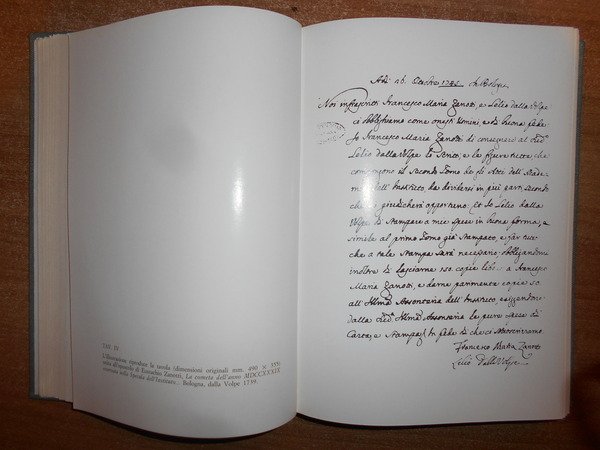 TAV. IV
L'illustrazione riproduce la tavola (dimensioni originali mm. 490 × 355)
unita all'opuscolo di Eustachio Zanotti, La cometa dell'anno MDCCXXXIX
osservata nella Specola dell'Instituto. Bologna, dalla Volpe 1739.
Adì 26. Ottobre 1741 in Bologna
Noi infrascritti Francesco Maria Zanotti, e Lelio dalla Volpe
ci obblighiamo come onesti Uomini e di buona fede
Io Francesco Maria Zanotti di consegnare al
Lelio dalla Volpe le Scritture, e le figure tutte che
compongono il secondo Tomo degli Atti dell'Accade-
mia dell'Instituto, da dividersi in più parti secondo
che si giudicherà opportuno. Et Io Lelio dalla
Volpe di Stampare a mie spese in buona forma, e
simile al primo Tomo già Stampato, e
che a tale Stampa sarà necessario obbligandomi
inoltre di lasciarne copie a Francesco
Maria Zanotti, e darne parimenti copie 50
all'Assonteria dell'Instituto, esiggendone
dalla Assonteria le pure spese di
Carta, e Stampa. In fede di che ci sottoscriviamo
Francesco Maria Zanotti
Lelio Dalla Volpe